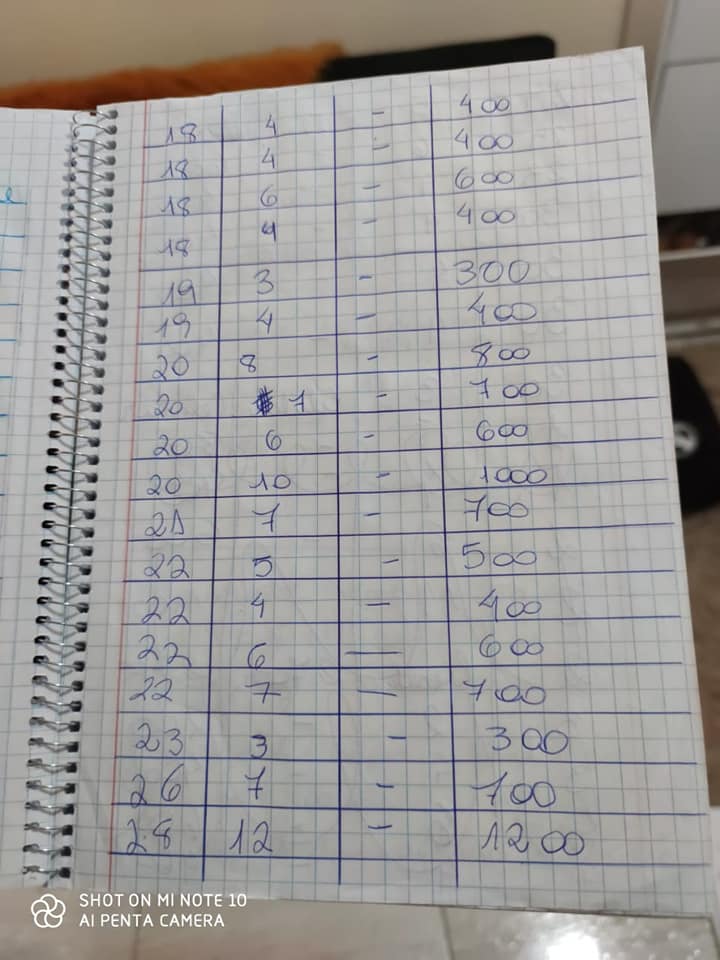 18 4 - 400
18 4 - 400
18 6 - 600
18 4 - 400
19 3 - 300
19 4 - 400
20 8 - 800
20 7 - 700
20 6 - 600
20 10 - 1000
21 7 - 700
22 5 - 500
22 4 - 400
22 6 - 600
22 7 - 700
23 3 - 300
26 7 - 700
28 12 - 1200
SHOT ON MI NOTE 10
AI PENTA CAMERA